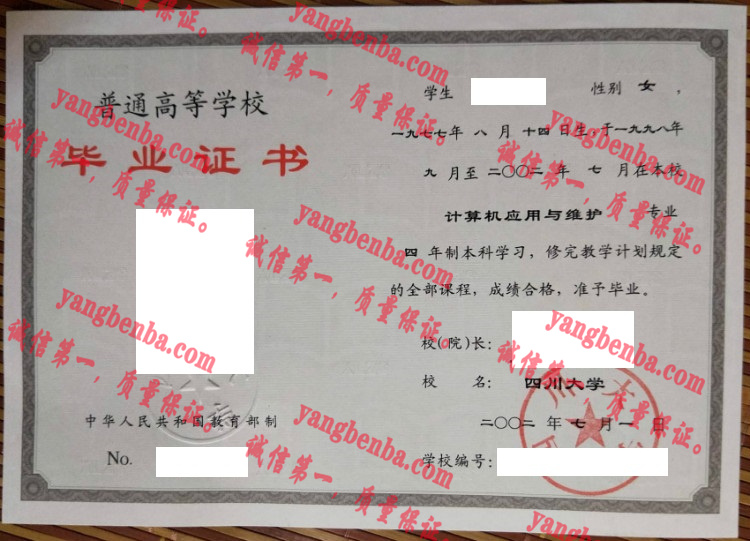 普通高等学校
毕业证书
中华人民共和国教育部制
No.
学生 性别 女 ,
一九七七年 八 月 十四 日生,于一九九八年
九 月至 二〇〇二 年 七 月在本校
计算机应用与维护 专业
四 年制本科学习，修完教学计划规定
的全部课程，成绩合格，准予毕业。
校(院)长:
校 名: 四川大学
二〇〇二 年 七 月 一 日
学校编号:
yangbenba.com
诚信第一，质量保证。
yangbenba.com
诚信第一，质量保证。
yangbenba.com
诚信第一，质量保证。
yangbenba.com
诚信第一，质量保证。
yangbenba.com
诚信第一，质量保证。
yangbenba.com
诚信第一，质量保证。
yangbenba.com
诚信第一，质量保证。